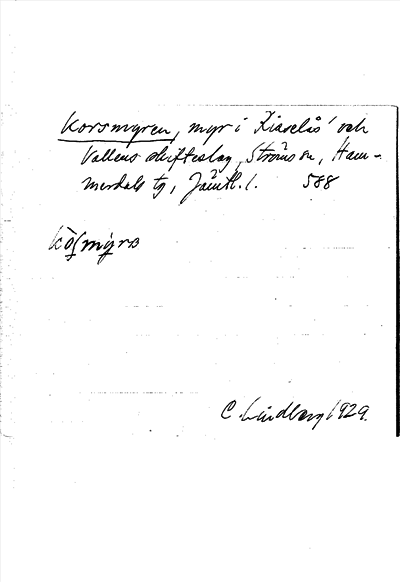 Korsmyren, myr i Kiaselås' och
Vallens skifteslag, Ströms sn, Ham-
merdals tg, Jämtl. l. 588
C. Lindberg 1929.